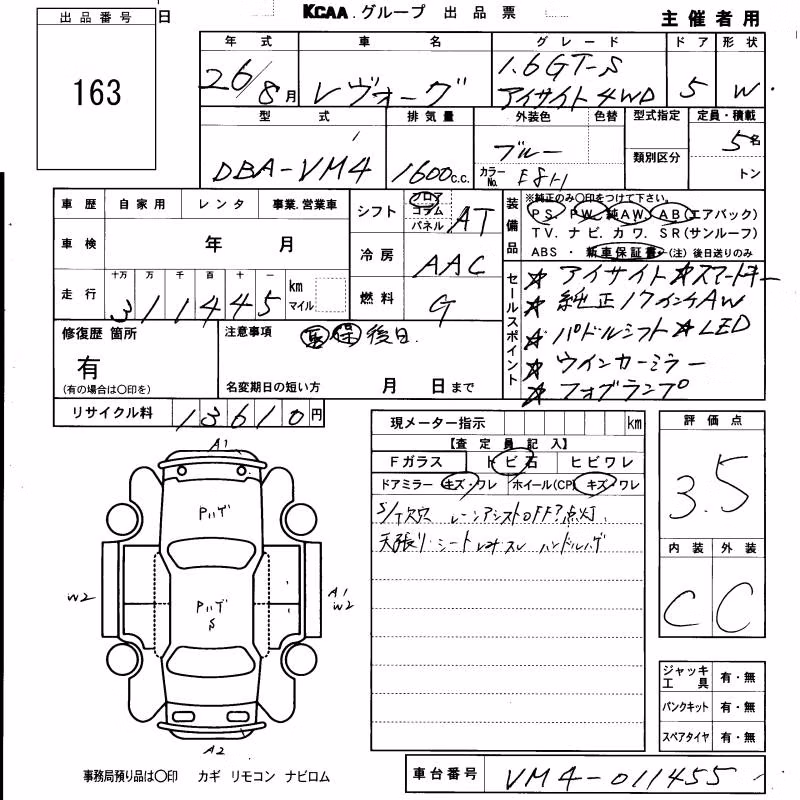 出品番号
日
KCAA.グループ 出品票
主催者用
163
年式 車名 グレード ドア 形状
26/8月 レヴォーグ 1.6GT-S アイサイト4WD 5 W
型式 排気量 外装色 色替 型式指定 定員・積載
DBA-VM4 1600c.c. ブルー 類別区分 5名
カラーNo. E8H トン
車歴 自家用 レンタ 事業.営業車
車検 年 月
走行 十万 万 千 百 十 一 km マイル
311445
シフト フロア コラム パネル AT
冷房 AAC
燃料 G
装備品 ※純正のみ〇印をつけて下さい。
PS. PW. 純AW. AB(エアバック)
TV. ナビ. カワ. SR(サンルーフ)
ABS ・ 新車保証書 (注)後日送りのみ
セールスポイント
☆ アイサイト ☆スマートキー
☆ 純正17インチAW
☆ パドルシフト ☆LED
☆ ウインカーミラー
☆ フォグランプ
修復歴 箇所
有
(有の場合は〇印を)
注意事項 保 後日.
名変期日の短い方 月 日まで
リサイクル料 13610円
現メーター指示 km
【査定員記入】
Fガラス トビ石 ヒビワレ
ドアミラー キズ・ワレ ホイール(CP) キズ・ワレ
S/T欠穴 レーンアシストOFF?点灯.
天張り・シート スレ ハンドルハゲ
評価点
3.5
内装 外装
C C
A1
Pハゲ
W2
Pハゲ
S
A1
W2
A2
ジャッキ工具 有・無
パンクキット 有・無
スペアタイヤ 有・無
事務局預り品は〇印 カギ リモコン ナビロム
車台番号 VM4-011455